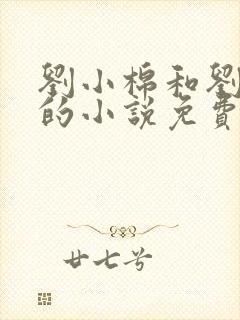 劉小棉和劉
的小說免費
廿七兮